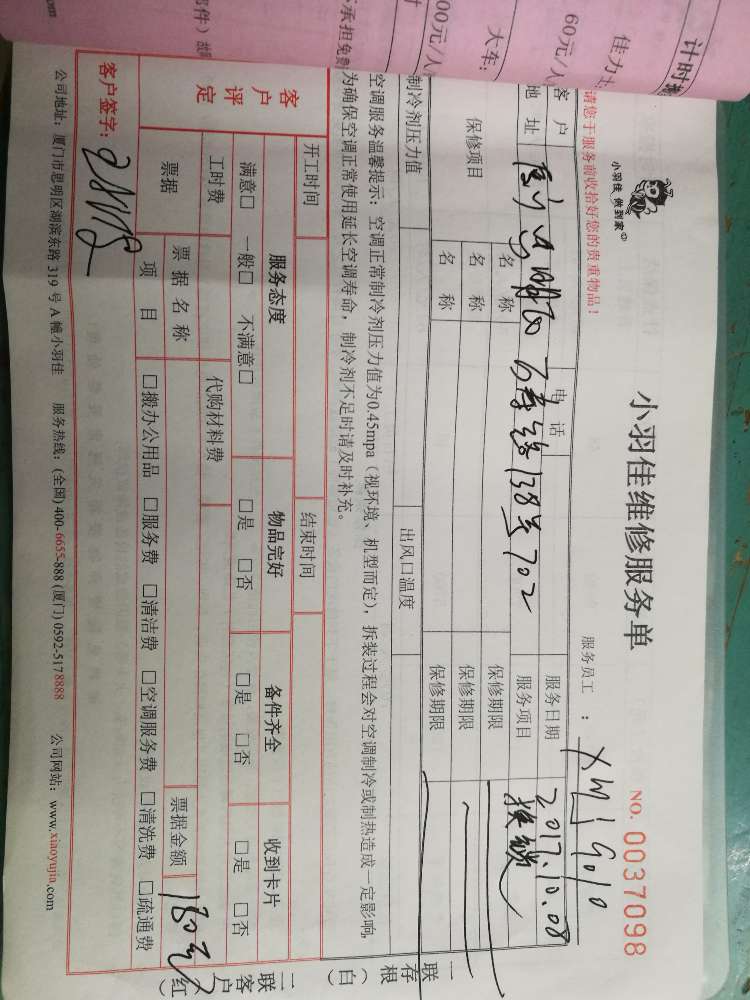 计时
佳力
60元/人
大车:
00元/人
承担免费
部件)
小羽佳 做到家
小羽佳维修服务单
NO. 0037098
请您于服务前收拾好您的贵重物品!
服务员工 : XMJ9010
客户
电话
服务日期 2017.10.08
地址 138号702
服务项目 换锁
保修项目
名称 保修期限
名称 保修期限
名称 保修期限
制冷剂压力值 出风口温度
空调服务温馨提示: 空调正常制冷剂压力值为0.45mpa(视环境、机型而定), 拆装过程会对空调制冷或制热造成一定影响,
为确保空调正常使用延长空调寿命, 制冷剂不足时请及时补充。
开工时间 结束时间
客户评定
服务态度 物品完好 备件齐全 收到卡片
满意□ 一般□ 不满意□ □是 □否 □是 □否 □是 □否
工时费 代购材料费
票据 票据名称 票据金额 180元
项目 □搬办公用品 □服务费 □清洁费 □空调服务费 □清洗费 □疏通费
客户签字:
公司地址: 厦门市思明区湖滨东路 319 号 A 幢小羽佳 服务热线: (全国) 400-6655-888 (厦门) 0592-5178888 公司网站: www.xiaoyujia.com
一联存根(白)
二联客户(红)